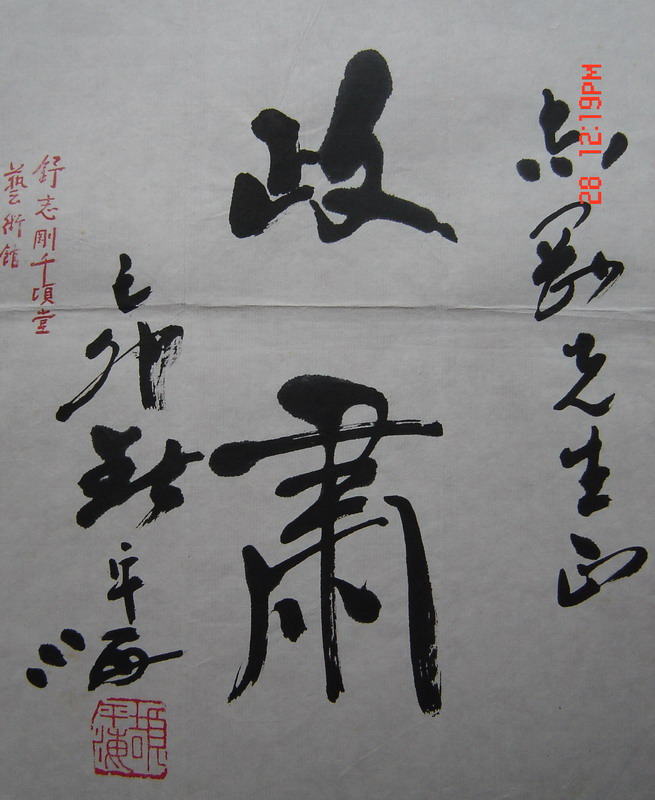 志剛先生正
政肅
己卯
平海
舒志剛千頃堂
藝術館
28 12:19PM